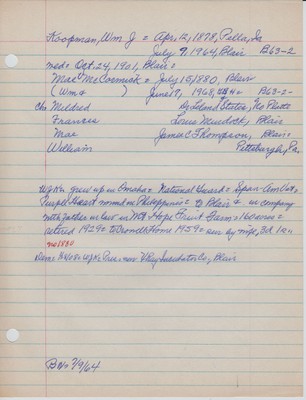 Koopman, Wm. J = Apr, 12, 1878, Pella, Ia
July 7, 1964, Blair B63-2
med = Oct. 24, 1901, Blair =
Mae McCormick = July 15, 1880, Blair
(Wm = ) June 7, 1968, B63-2-
ch: Mildred Leland States, No Platte
Frances Louis Murdock, Blair
Mae James C Thompson, Blair
William Pittsburgh, Pa.
WJK = grew up in Omaha = National Guard = Span-Am War =
Purple Heart wound in Philippines = to Blair & in company
with father in law in Mt Hope Fruit Farm = 160 acres =
retired 1929 = to Crowell Home 1959 = sur by wife, 3d 1s
no 1880
WJK Pres. = now Incubator Co, Blair
B 7/9/64